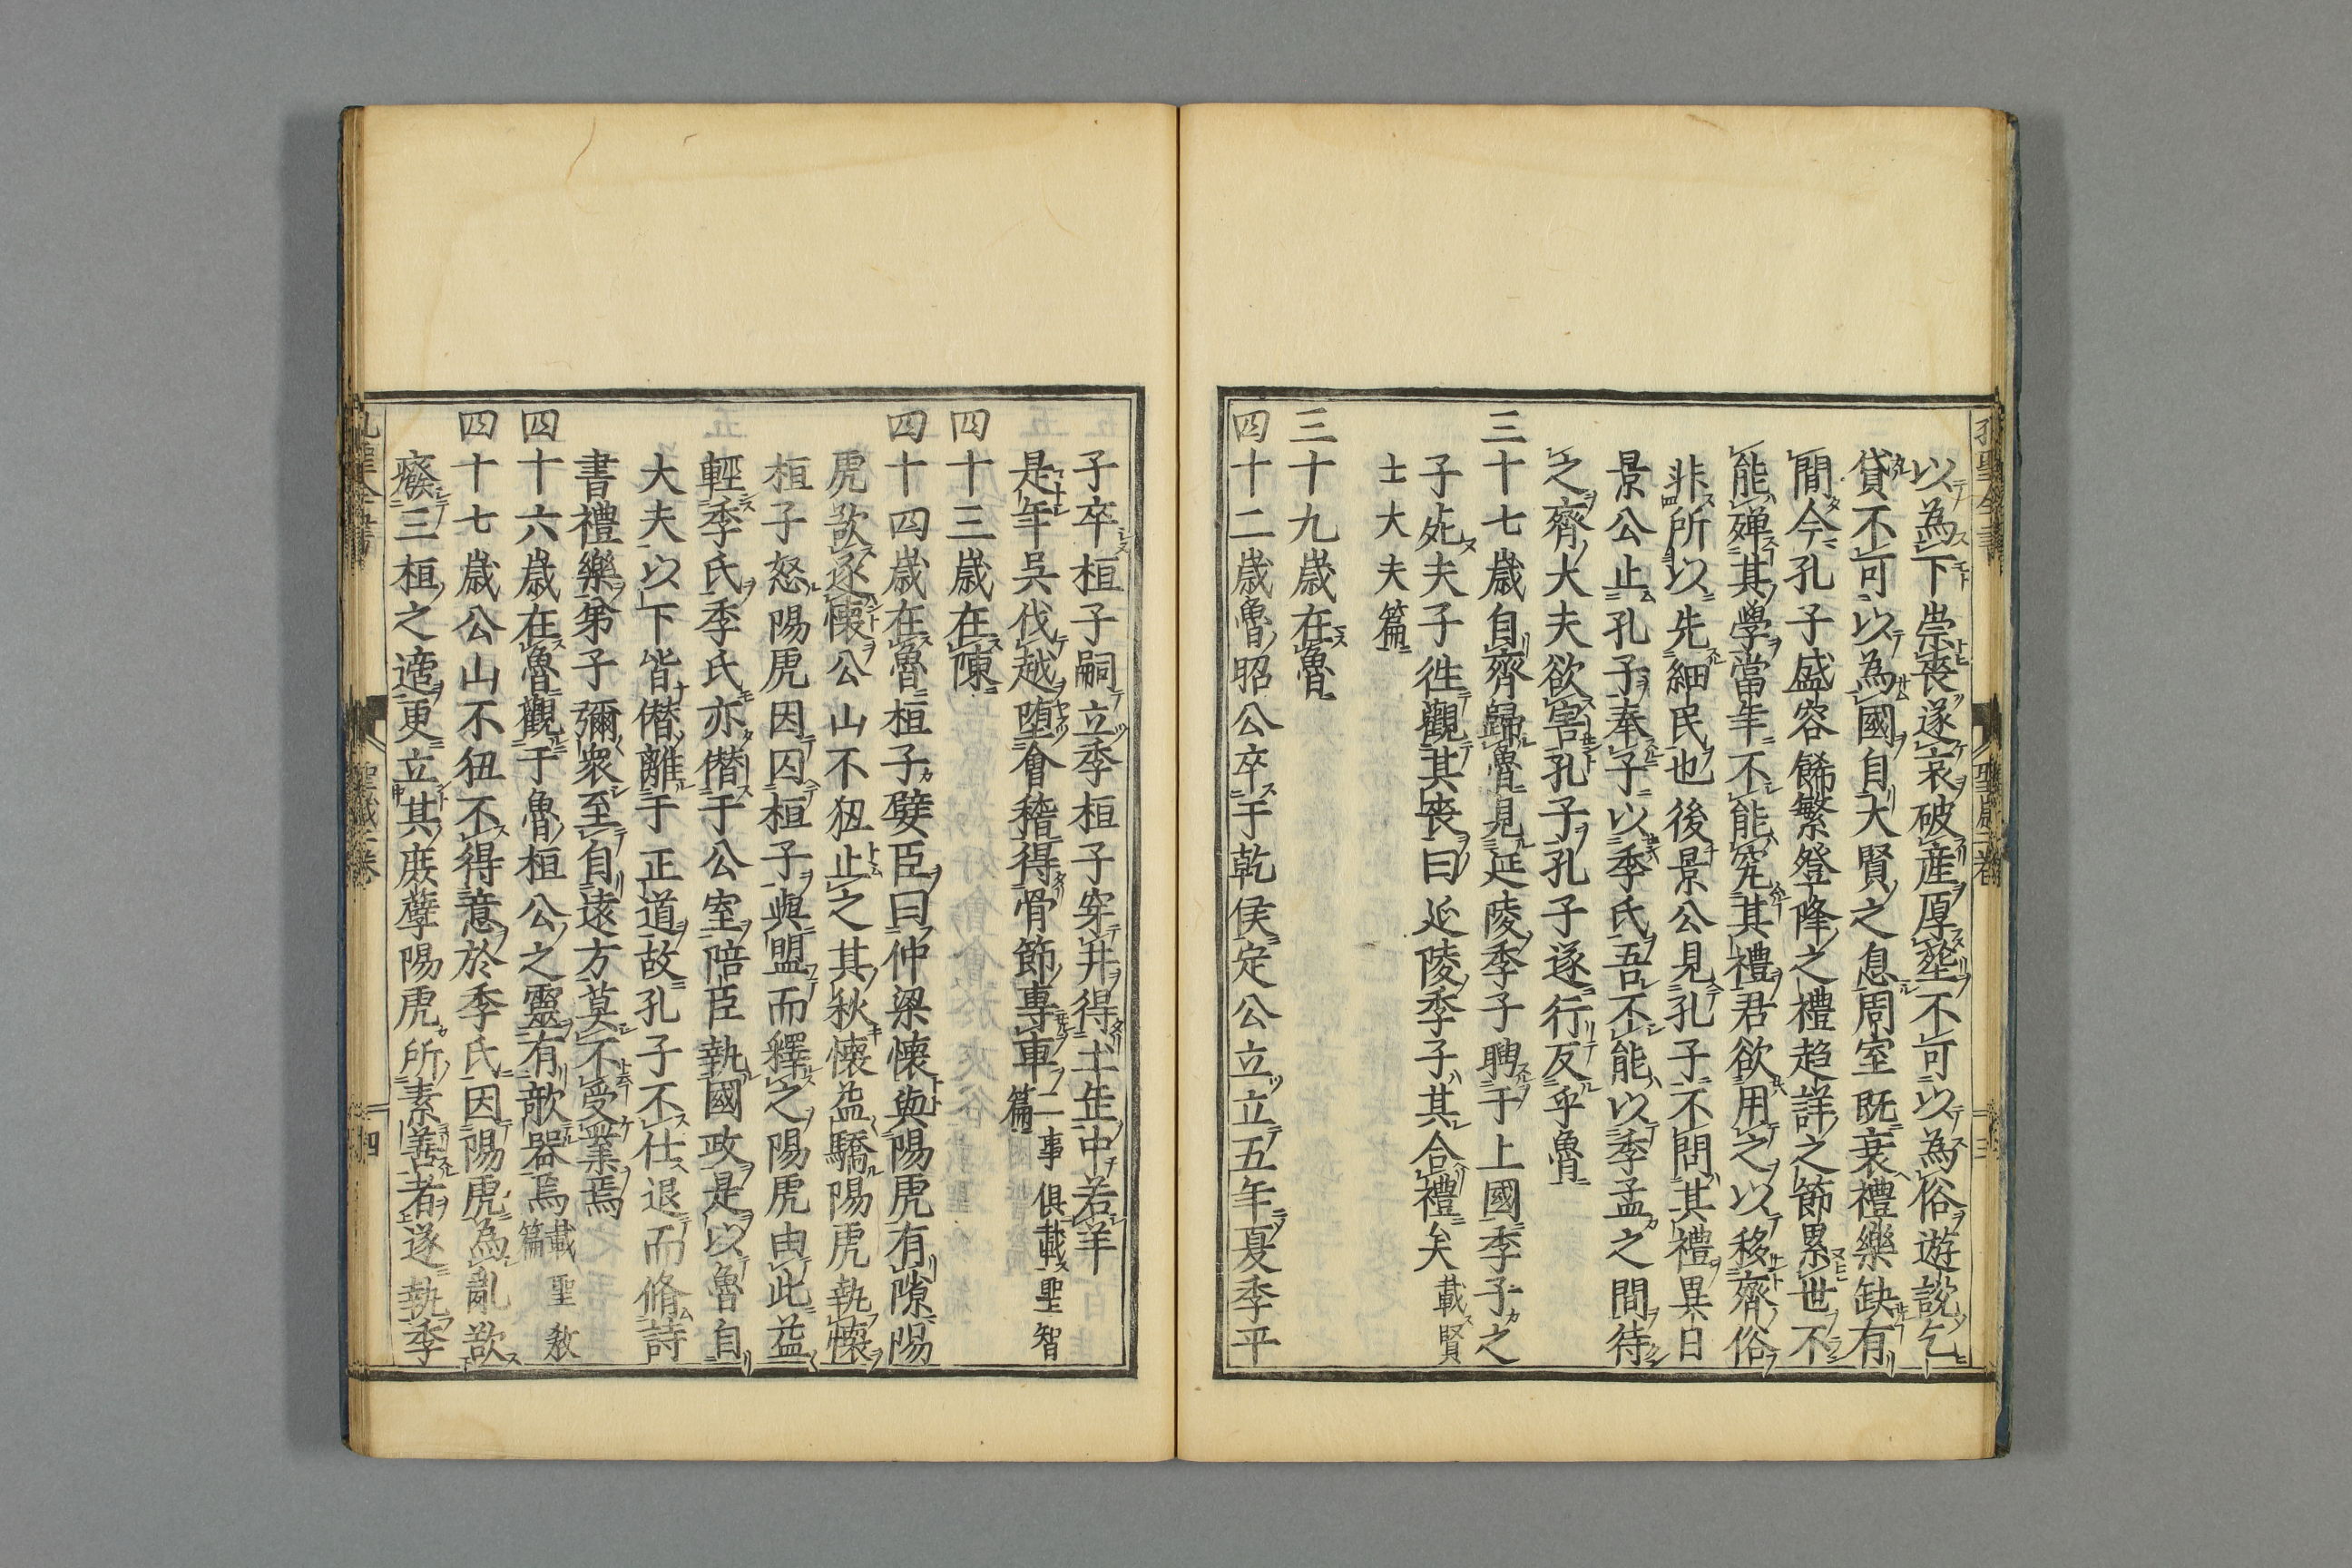 以為下崇喪遂哀破産厚葬不可以為俗遊説乞
貸不可以為國自大賢之息周室既衰禮樂缺有
間今孔子盛容餙繁登降之禮趋詳之節累世不
能殫其學當年不能究其禮君欲用之以移齊俗
非所以先細民也後景公見孔子不問其禮異日
景公止孔子奉子以季氏吾不能以季孟之間待
之齊大夫欲害孔子孔子遂行反乎魯
三十七歳自齊歸魯見延陵季子聘于上國季子之
子死夫子徃觀其喪曰延陵季子其合禮矣載賢
士大夫篇
三十九歳在魯
四十二歳魯昭公卒于乾侯定公立立五年夏季平
子卒桓子嗣立季桓子穿井得土缶中若羊
是年吳伐越堕會稽得骨節專車二事俱載聖智
篇
四十三歳在陳
四十四歳在魯桓子嬖臣曰仲梁懷與陽虎有隙陽
虎欲逐懷公山不狃止之其秋懷益驕陽虎執懷
桓子怒陽虎因囚桓子與盟而釋之陽虎由此益
輕季氏季氏亦僣于公室陪臣執國政是以魯自
大夫以下皆僣離于正道故孔子不仕退而脩詩
書禮樂弟子彌衆至自遠方莫不受業焉
四十六歳在魯觀于魯桓公之靈有欹器焉載聖敎
篇
四十七歳公山不狃不得意於季氏因陽虎為亂欲
癈三桓之適更立其庻孽陽虎所素善者遂執季
四